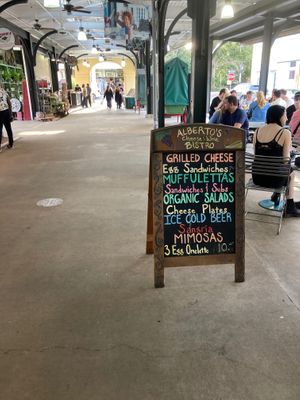 ALBERTO'S
Cheese & Wine
BISTRO
GRILLED CHEESE
Egg Sandwiches
MUFFULETTAS
Sandwiches & Subs
ORGANIC SALADS
Cheese Plates
ICE COLD BEER
Sangria
MIMOSAS
3 Egg Omelette 10.-